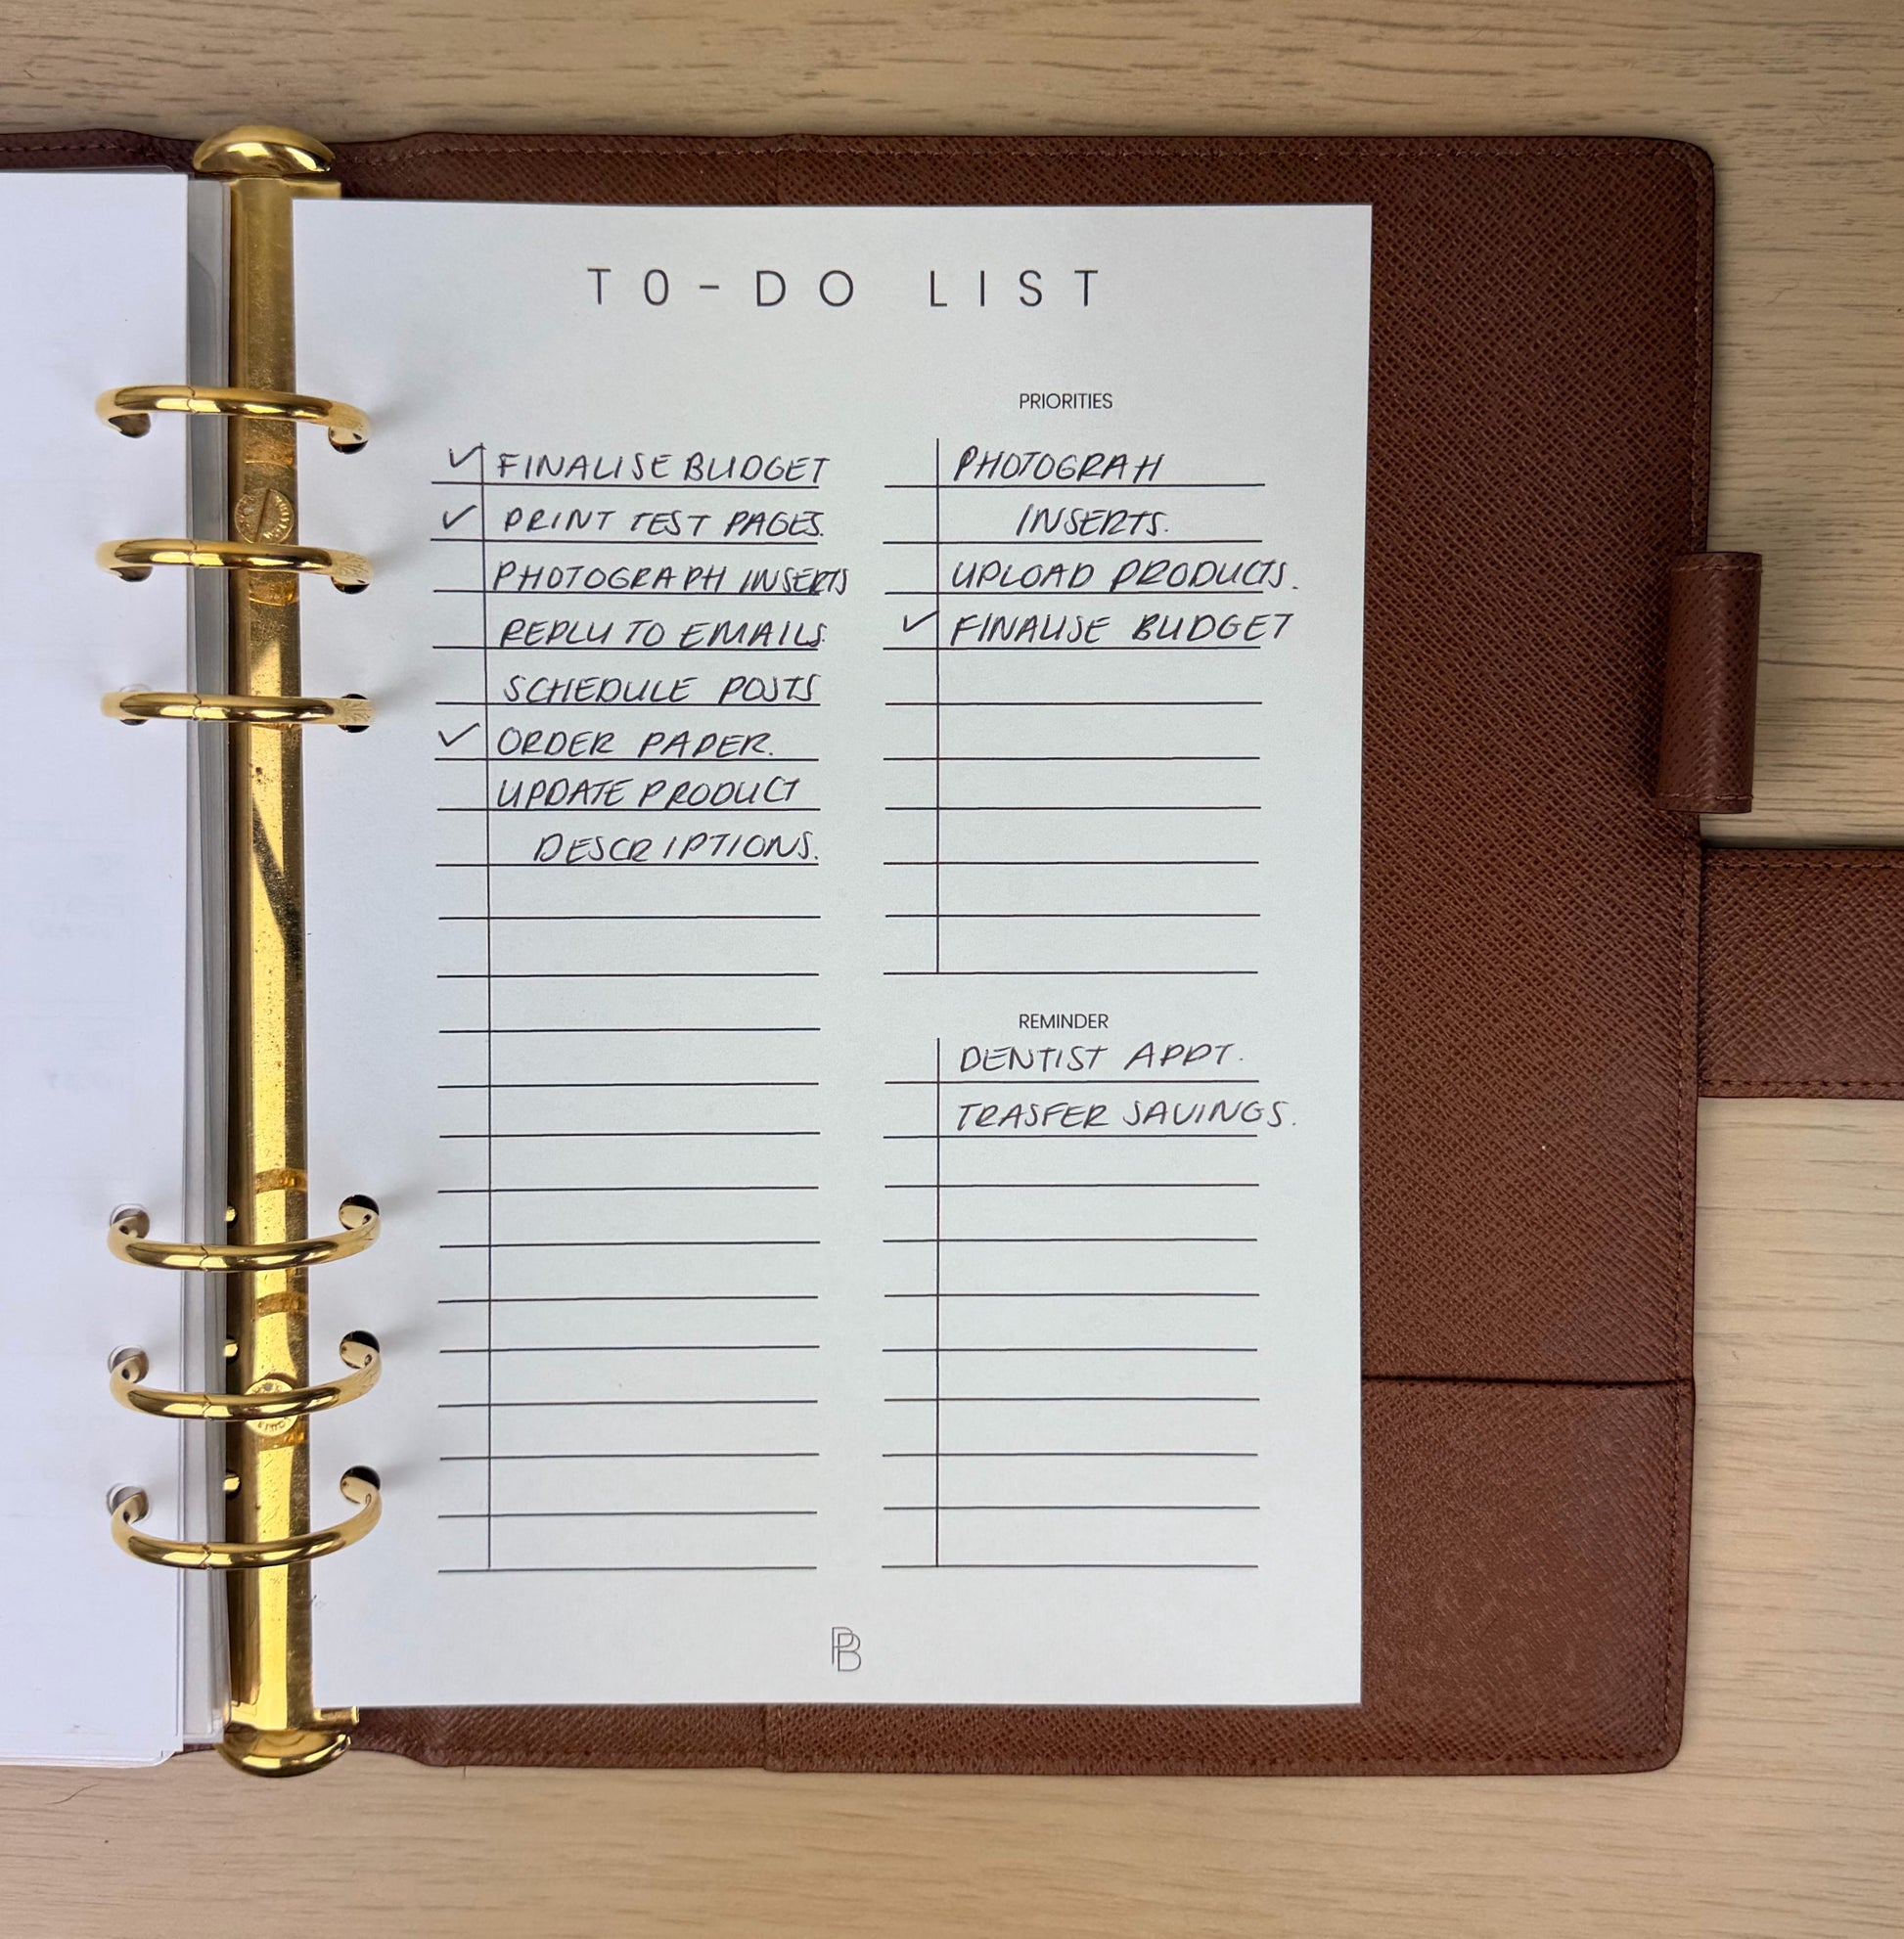 TO-DO LIST
FINALISE BUDGET
PRINT TEST PAGES.
PHOTOGRAPH INSERTS
REPLY TO EMAILS.
SCHEDULE POSTS
ORDER PAPER.
UPDATE PRODUCT
DESCRIPTIONS.
PRIORITIES
PHOTOGRAH
INSERTS.
UPLOAD PRODUCTS.
FINALISE BUDGET
REMINDER
DENTIST APPT.
TRASFER SAVINGS.
PB